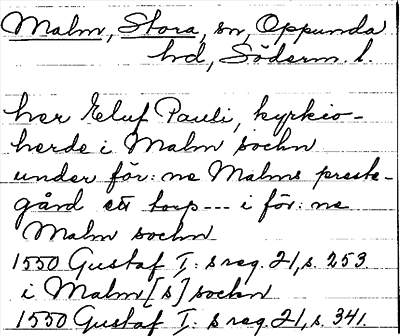 Malm, Stora, sn, Oppunda
hd, Söderm. l.
her Eluf Pauli, kyrkio-
herde i Malm sochn
under för: ne Malms preste-
gård ett torp --- i för: ne
Malm sochn
1550 Gustaf I: s reg. 21, s. 253.
i Malm [s] sochn
1550 Gustaf I: s reg. 21, s. 341.